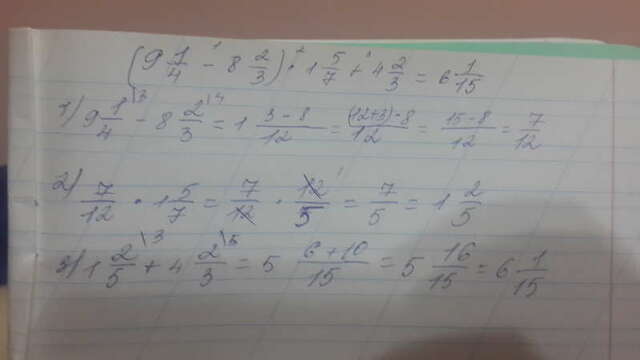 (9 1/4 - 8 2/3) • 1 5/7 + 4 2/3 = 6 1/15
1) 9 1/4 \3 - 8 2/3 \4 = 1 (3-8)/12 = ((12+3)-8)/12 = (15-8)/12 = 7/12
2) 7/12 • 1 5/7 = 7/12 • 12/5 = 7/5 = 1 2/5
3) 1 2/5 \3 + 4 2/3 \5 = 5 (6+10)/15 = 5 16/15 = 6 1/15